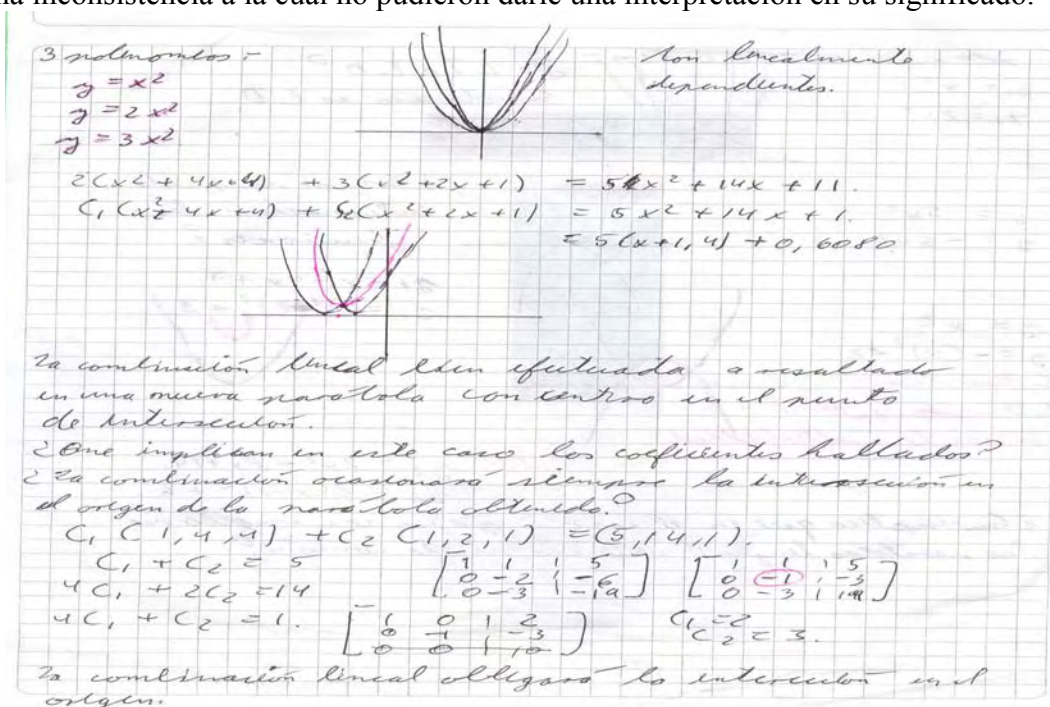 na inconsistencia a la cual no pudieron darle una interpretación en su significado.
3 polinomios =
y = x²
y = 2x²
y = 3x²
son linealmente
dependientes.
2(x² + 4x+4) + 3(x²+2x+1) = 5x² + 14x + 11.
C₁(x² 4x+4) + C₂(x²+2x+1) = 5x²+14x+1.
= 5(x+1,4) + 0,6080
La combinación lineal efectuada a resultado
en una nueva parábola con centro en el punto
de intersección.
¿Que implican en este caso los coeficientes hallados?
¿La combinación ocasionará siempre la intersección en
el origen de la parábola obtenida?
C₁(1,4,4) + C₂(1,2,1) = (5,14,1).
C₁ + C₂ = 5
4C₁ + 2C₂ = 14
4C₁ + C₂ = 1.
[1 1 | 5
0 -2 | -6
0 -3 | -19]
[1 1 | 5
0 -1 | -3
0 -3 | 19]
[1 0 | 2
0 -1 | -3
0 0 | 10]
C₁ = 2
C₂ = 3.
La combinación lineal obligará la intersección en el
origen.